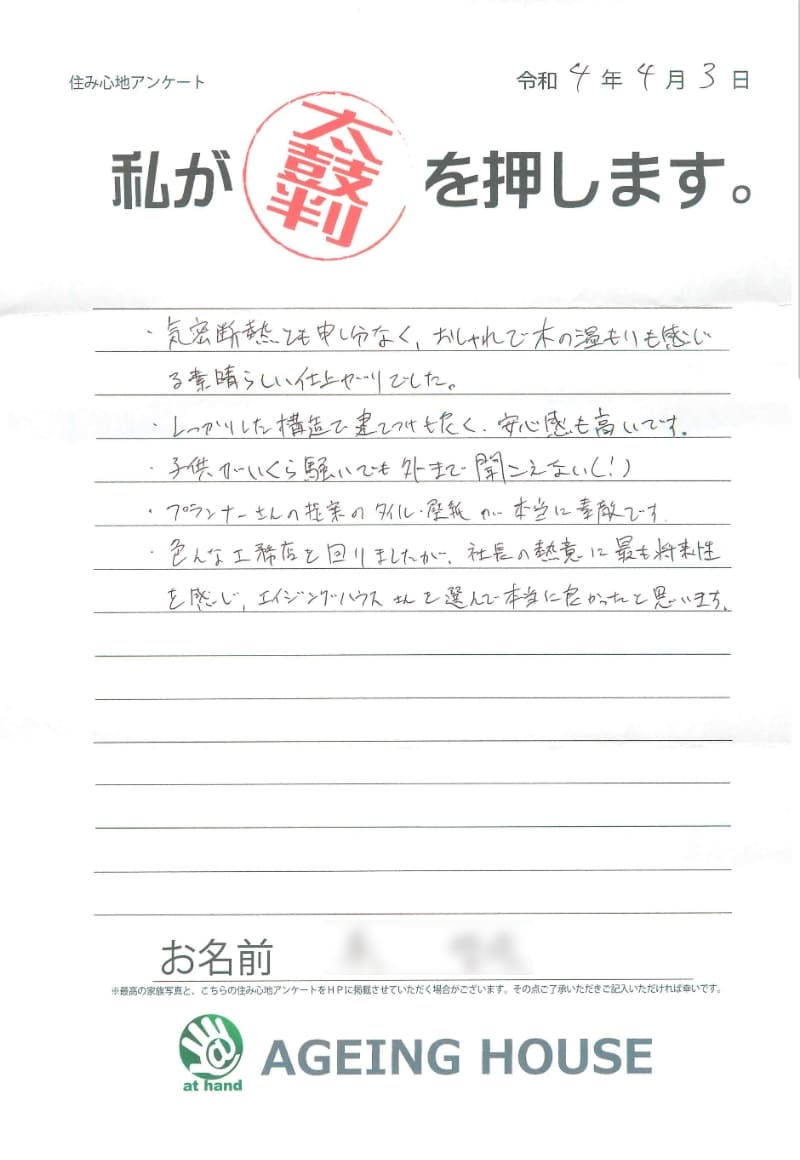 住み心地アンケート
令和 4 年 4 月 3 日
私が太鼓判を押します。
・気密断熱とも申し分なく、おしゃれで木の温もりも感じ
る素晴らしい仕上がりでした。
・しっかりした構造で建てつけも良く、安心感も高いです。
・子供がいくら騒いでも外まで聞こえない(!)
・プランナーさんの提案のタイル・壁紙が本当に素敵です。
・色んな工務店を回りましたが、社長の熱意に最も将来性
を感じ、エイジングハウスさんを選んで本当に良かったと思います。
お名前
※最高の家族写真と、こちらの住み心地アンケートをHPに掲載させていただく場合がございます。その点ご了承いただきご記入いただければ幸いです。
@
at hand
AGEING HOUSE